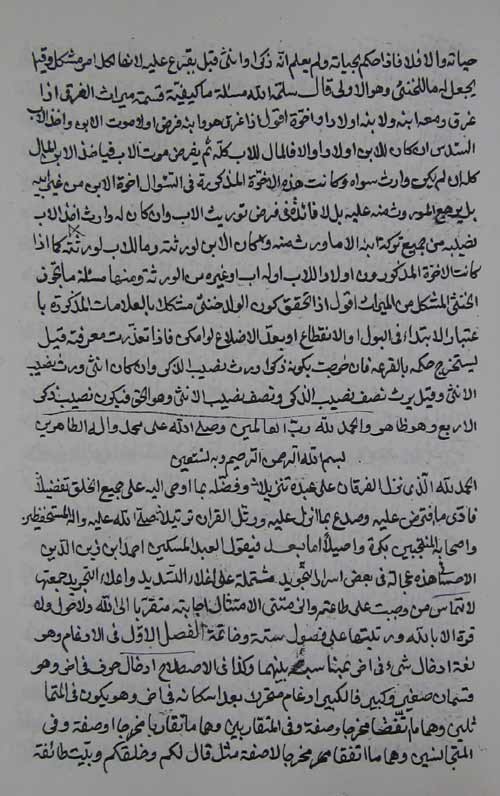 حياته والا فلا فاذا حكم بحياته ولم يعلم انه ذكر او انثى قيل يقرع عليه لانها لكل امر مشكل وقيل
يجعل له ما للخنثى وهو الاولى قال سلمه الله مسئلة ما كيفية قسمة ميراث الغرقى اذا
غرق ومعه ابنه ولابنه اولاد او اخوة اقول اذا غرق هو وابنه فرض اولا موت الابن واخذ الاب
السدس ان كان للابن اولاد والا فالمال للاب كله ثم يفرض موت الاب فياخذ الابن المال
كله ان لم يكن وارث سواه وكانت هذه الاخوة المذكورة في السئوال اخوة الابن من غير ابيه
بل يرجع الموروث منه عليه بل لا فائدة في فرض توريث الاب وان كان له وارث اخذ الاب
نصيبه من جميع تركة ابنه الا ما ورث منه وكان الابن لورثته ومال الاب لورثته كما اذا
كانت الاخوة المذكورون اولاد الاب اوله اب او غيره من الورثة ومنها مسئلة ما يجوز
الخنثى المشكل من الميراث اقول اذا تحقق كون الولد خنثى مشكلا بالعلامات المذكورة با
عتبار الابتداء في البول او الانقطاع او بعد الاضلاع لو امكن فاذا تعذرت معرفته قيل
يستخرج حكمه بالقرعه فان خرجت بكونه ذكرا ورث نصيب الذكر وان كان انثى ورث نصيب
الانثى وقيل يرث نصف نصيب الذكر ونصف نصيب الانثى وهو الحق فيكون نصيب ذكر
الاربع وهو ظاهر والحمد لله رب العالمين وصلى الله على محمد واله الطاهرين
بسم الله الرحمن الرحيم وبه نستعين
الحمد لله الذي نزل الفرقان على عبده تنزيلا وفضله بما اوحى اليه على جميع الخلق تفضيلا
فادى ما افترض عليه وصدع بما انزل عليه ورتل القران ترتيلا صلى الله عليه واله المستحفظين
واصحابه المنتجبين بكرة واصيلا اما بعد فيقول العبد المسكين احمد ابن زين الدين
الاحسائي هذه عجالة في بعض اسرار التجويد مشتملة على اغلاء التسديد واعلاء التجريد جمعتها
لالتماس من وجبت علي طاعته والى منتى الامتثال اجابته متقربا الى الله ولا حول ولا
قوة الا بالله ورتبتها على فصول ستة وخاتمة الفصل الاول في الادغام وهو
لغة ادخال شيء في اخر بينهما وكذا في الاصطلاح ادخال حرف في اخر وهو
قسمان صغير وكبير فالكبير ادغام متحرك بعد اسكانه في اخر وهو يكون في المتما
ثلين وهما ما اتفقا مخرجا وصفة وفي المتقاربين وهما ما تقاربا مخرجا او صفة وفي
المتجانسين وهما ما اتفقا مخرجا لا صفة مثل قال لكم وخلقكم وبيت طائفة